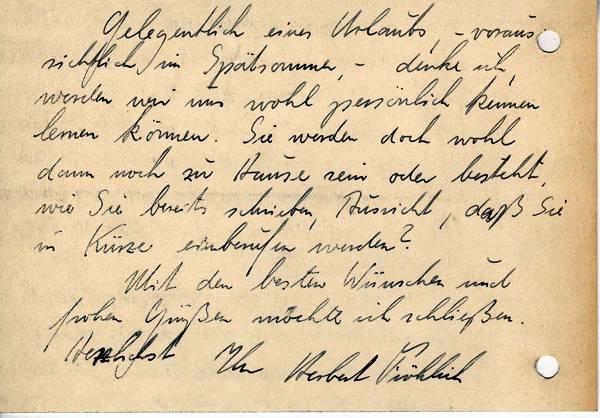 Gelegentlich eines Urlaubs, - voraus-
sichtlich im Spätsommer, - denke ich,
werden wir uns wohl persönlich kennen
lernen können. Sie werden doch wohl
dann noch zu Hause sein oder besteht,
wie Sie bereits schrieben, Aussicht, daß Sie
in Kürze einberufen werden?
Mit den besten Wünschen und
frohen Grüßen möchte ich schließen.
Herzlichst Ihr Herbert Fröhlich